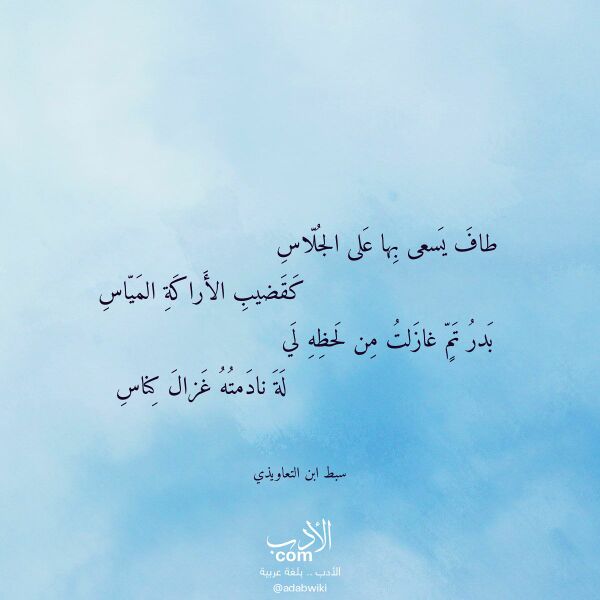 طافَ يَسعى بِها عَلى الجُلّاسِ
كَقَضيبِ الأَراكَةِ المَيّاسِ
بَدرُ تَمٍّ غازَلتُ مِن لَحظِهِ لَي
لَةَ نادَمتُهُ غَزالَ كِناسِ
سبط ابن التعاويذي
الأدب
com
الأدب .. بلغة عربية
@adabwiki